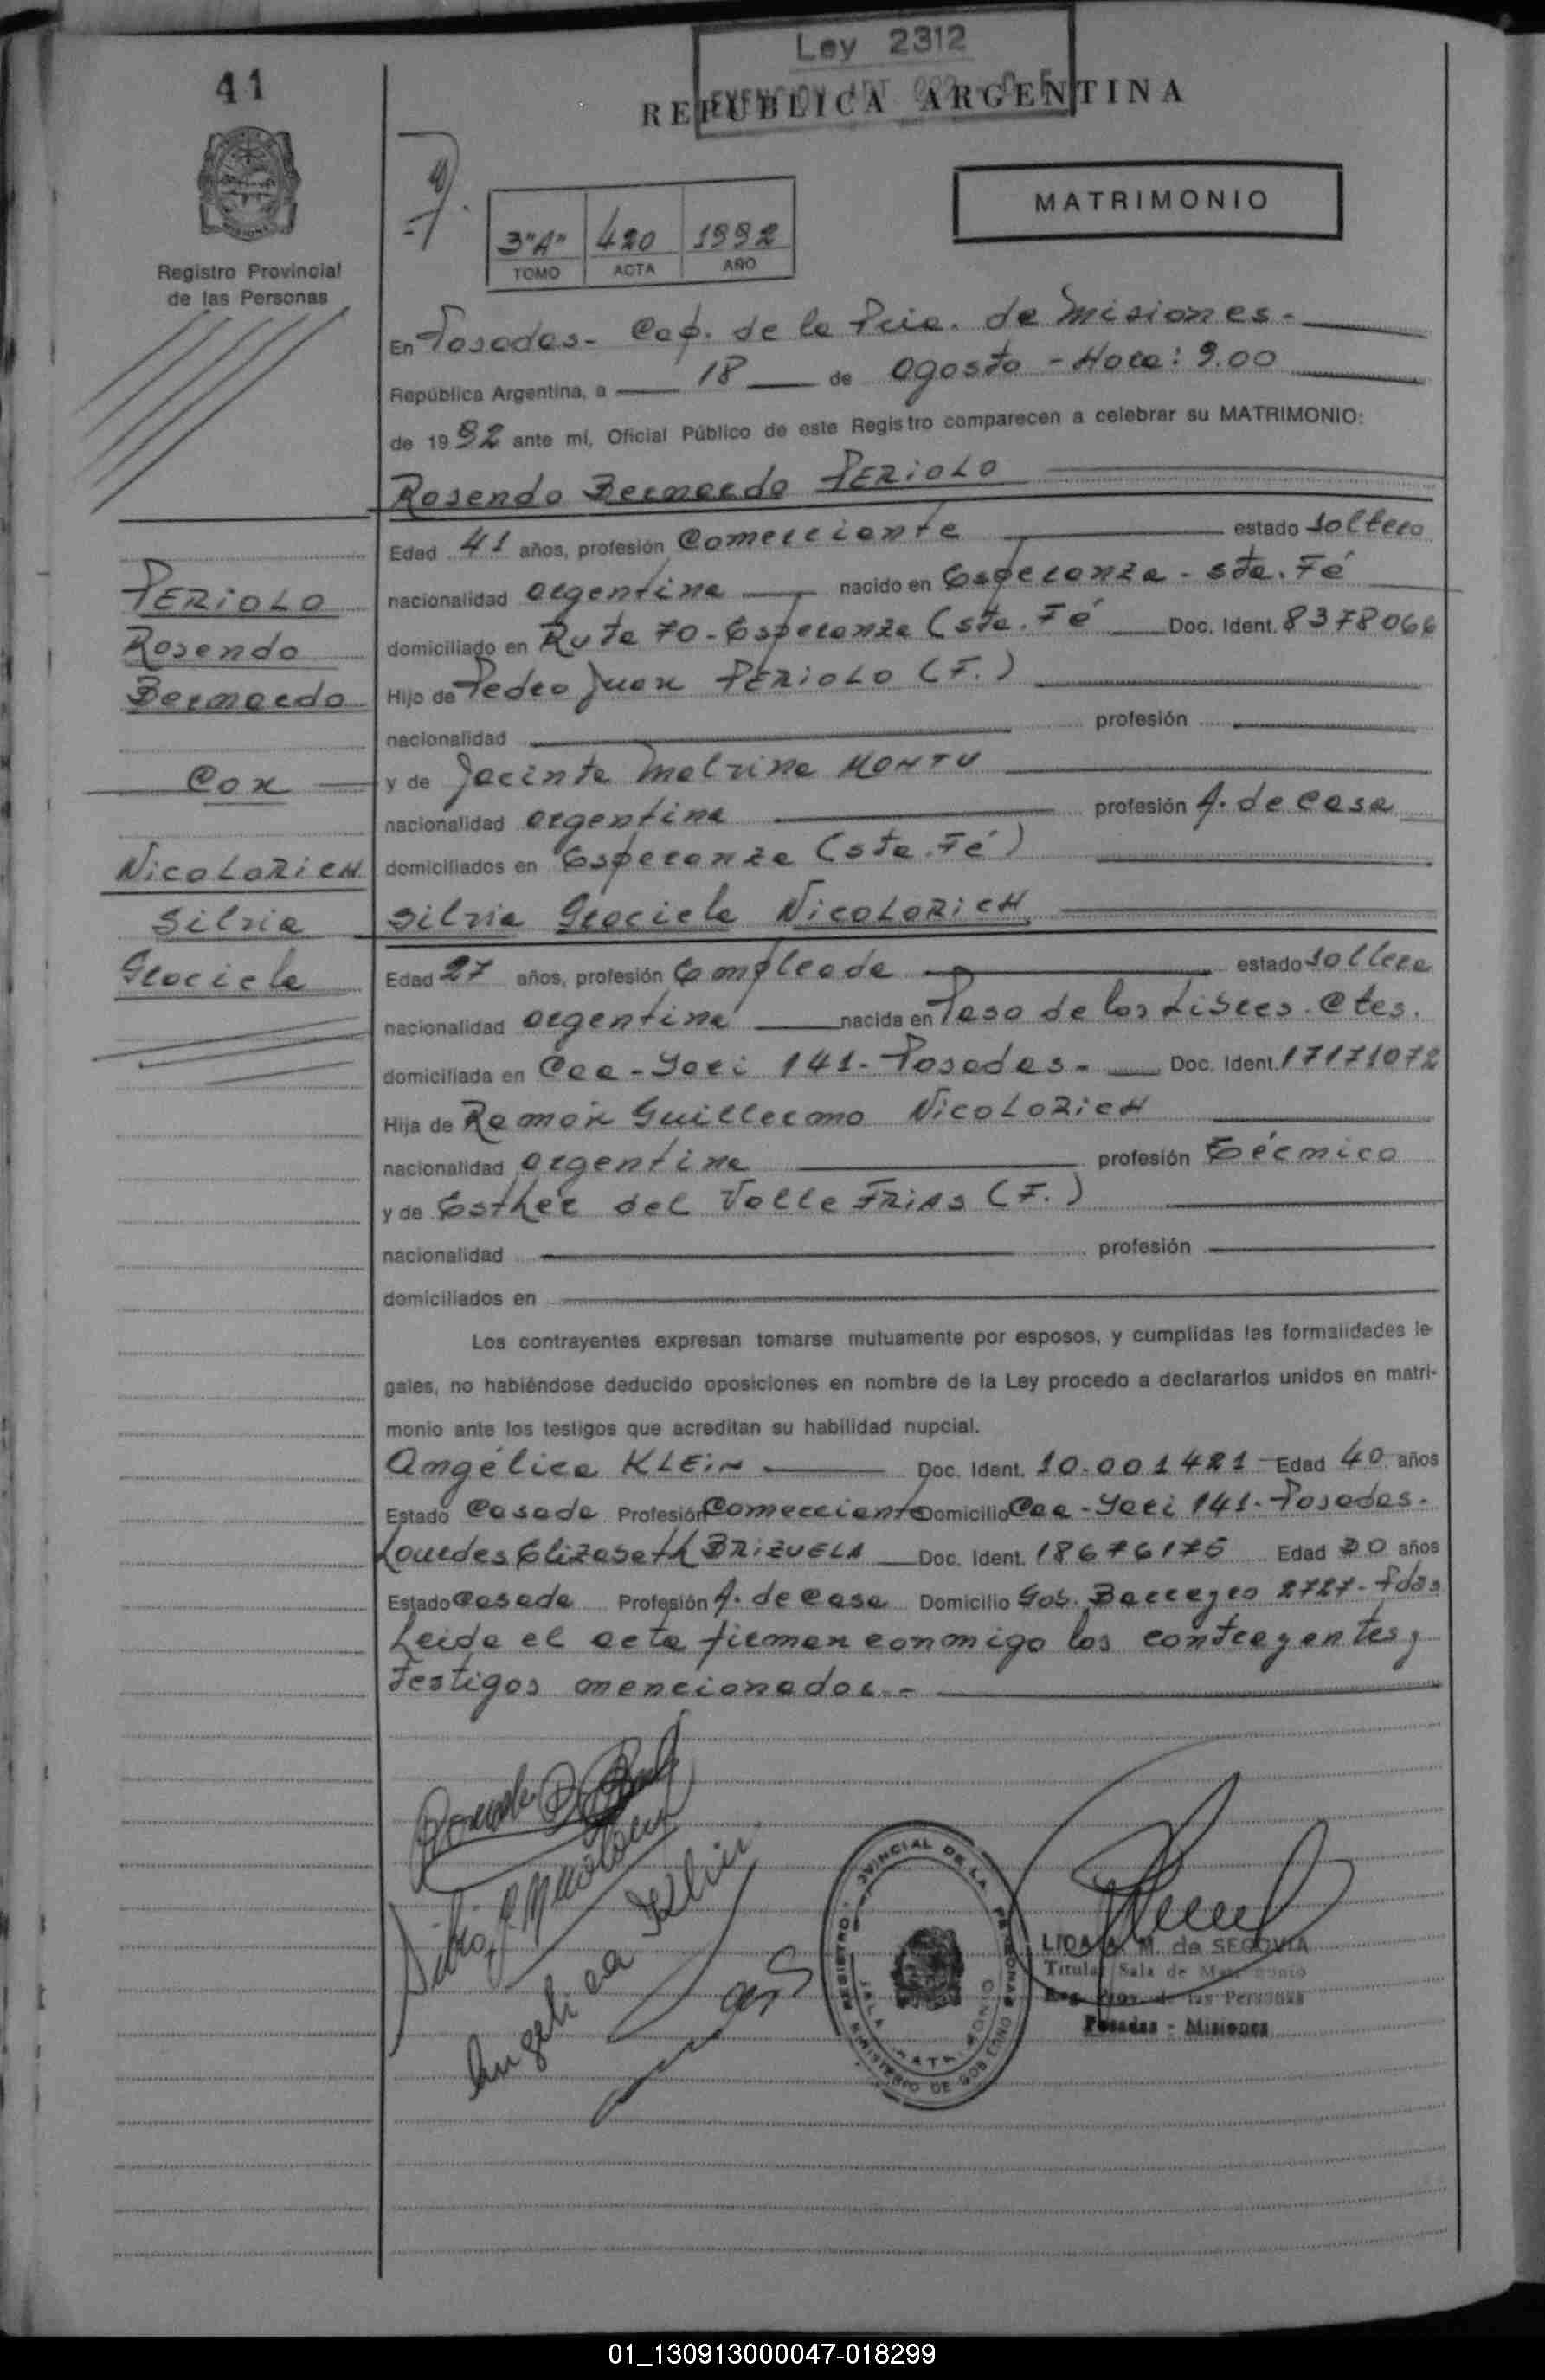 Ley 2312
41
REPUBLICA ARGENTINA
MATRIMONIO
3"A" 420 1992
TOMO ACTA AÑO
Registro Provincial
de las Personas
En Posadas- Cap. de la Pcia. de Misiones.-
República Argentina, a 18 de agosto - Hora: 9.00
de 1992 ante mí, Oficial Público de este Registro comparecen a celebrar su MATRIMONIO:
Rosendo Bernardo PERIOLO
Edad 41 años, profesión Comerciante estado soltero
PERIOLO
Rosendo
Bernardo
Con
NICOLORICH
Silvia
Graciela
nacionalidad argentina nacido en Esperanza - Sta. Fé
domiciliado en Ruta 70-Esperanza (Sta. Fé Doc. Ident. 8378066
Hijo de Pedro Juan PERIOLO (F.)
nacionalidad profesión
y de Jacinta Malvina MONTU
nacionalidad argentina profesión A. de casa
domiciliados en Esperanza (Sta. Fé)
Silvia Graciela NICOLORICH
Edad 27 años, profesión Empleada estado soltera
nacionalidad argentina nacida en Paso de los Libres. Ctes.
domiciliada en Caa-Yari 141- Posadas.- Doc. Ident. 17171072
Hija de Ramón Guillermo NICOLORICH
nacionalidad argentina profesión Técnico
y de Esther del Valle FRIAS (F.)
nacionalidad profesión
domiciliados en
Los contrayentes expresan tomarse mutuamente por esposos, y cumplidas las formalidades le-
gales, no habiéndose deducido oposiciones en nombre de la Ley procedo a declararlos unidos en matri-
monio ante los testigos que acreditan su habilidad nupcial.
Angélica KLEIN Doc. Ident. 10.001421 Edad 40 años
Estado Casada Profesión Comerciante Domicilio Caa-Yari 141- Posadas.
Lourdes Elizabeth BRIZUELA Doc. Ident. 18676175 Edad 20 años
Estado Casada Profesión A. de casa Domicilio Gob. Barreyro 2727- Pdas
Leida el acta firman conmigo los contrayentes y
testigos mencionados.-
Angelica Klein
REGISTRO PROVINCIAL DE LAS PERSONAS
SALA MATRIMONIO
MINISTERIO DE GOBIERNO
LIDA A. M. de SEGOVIA
Titular Sala de Matrimonio
Reg. Prov. de las Personas
Posadas - Misiones
01_130913000047-018299